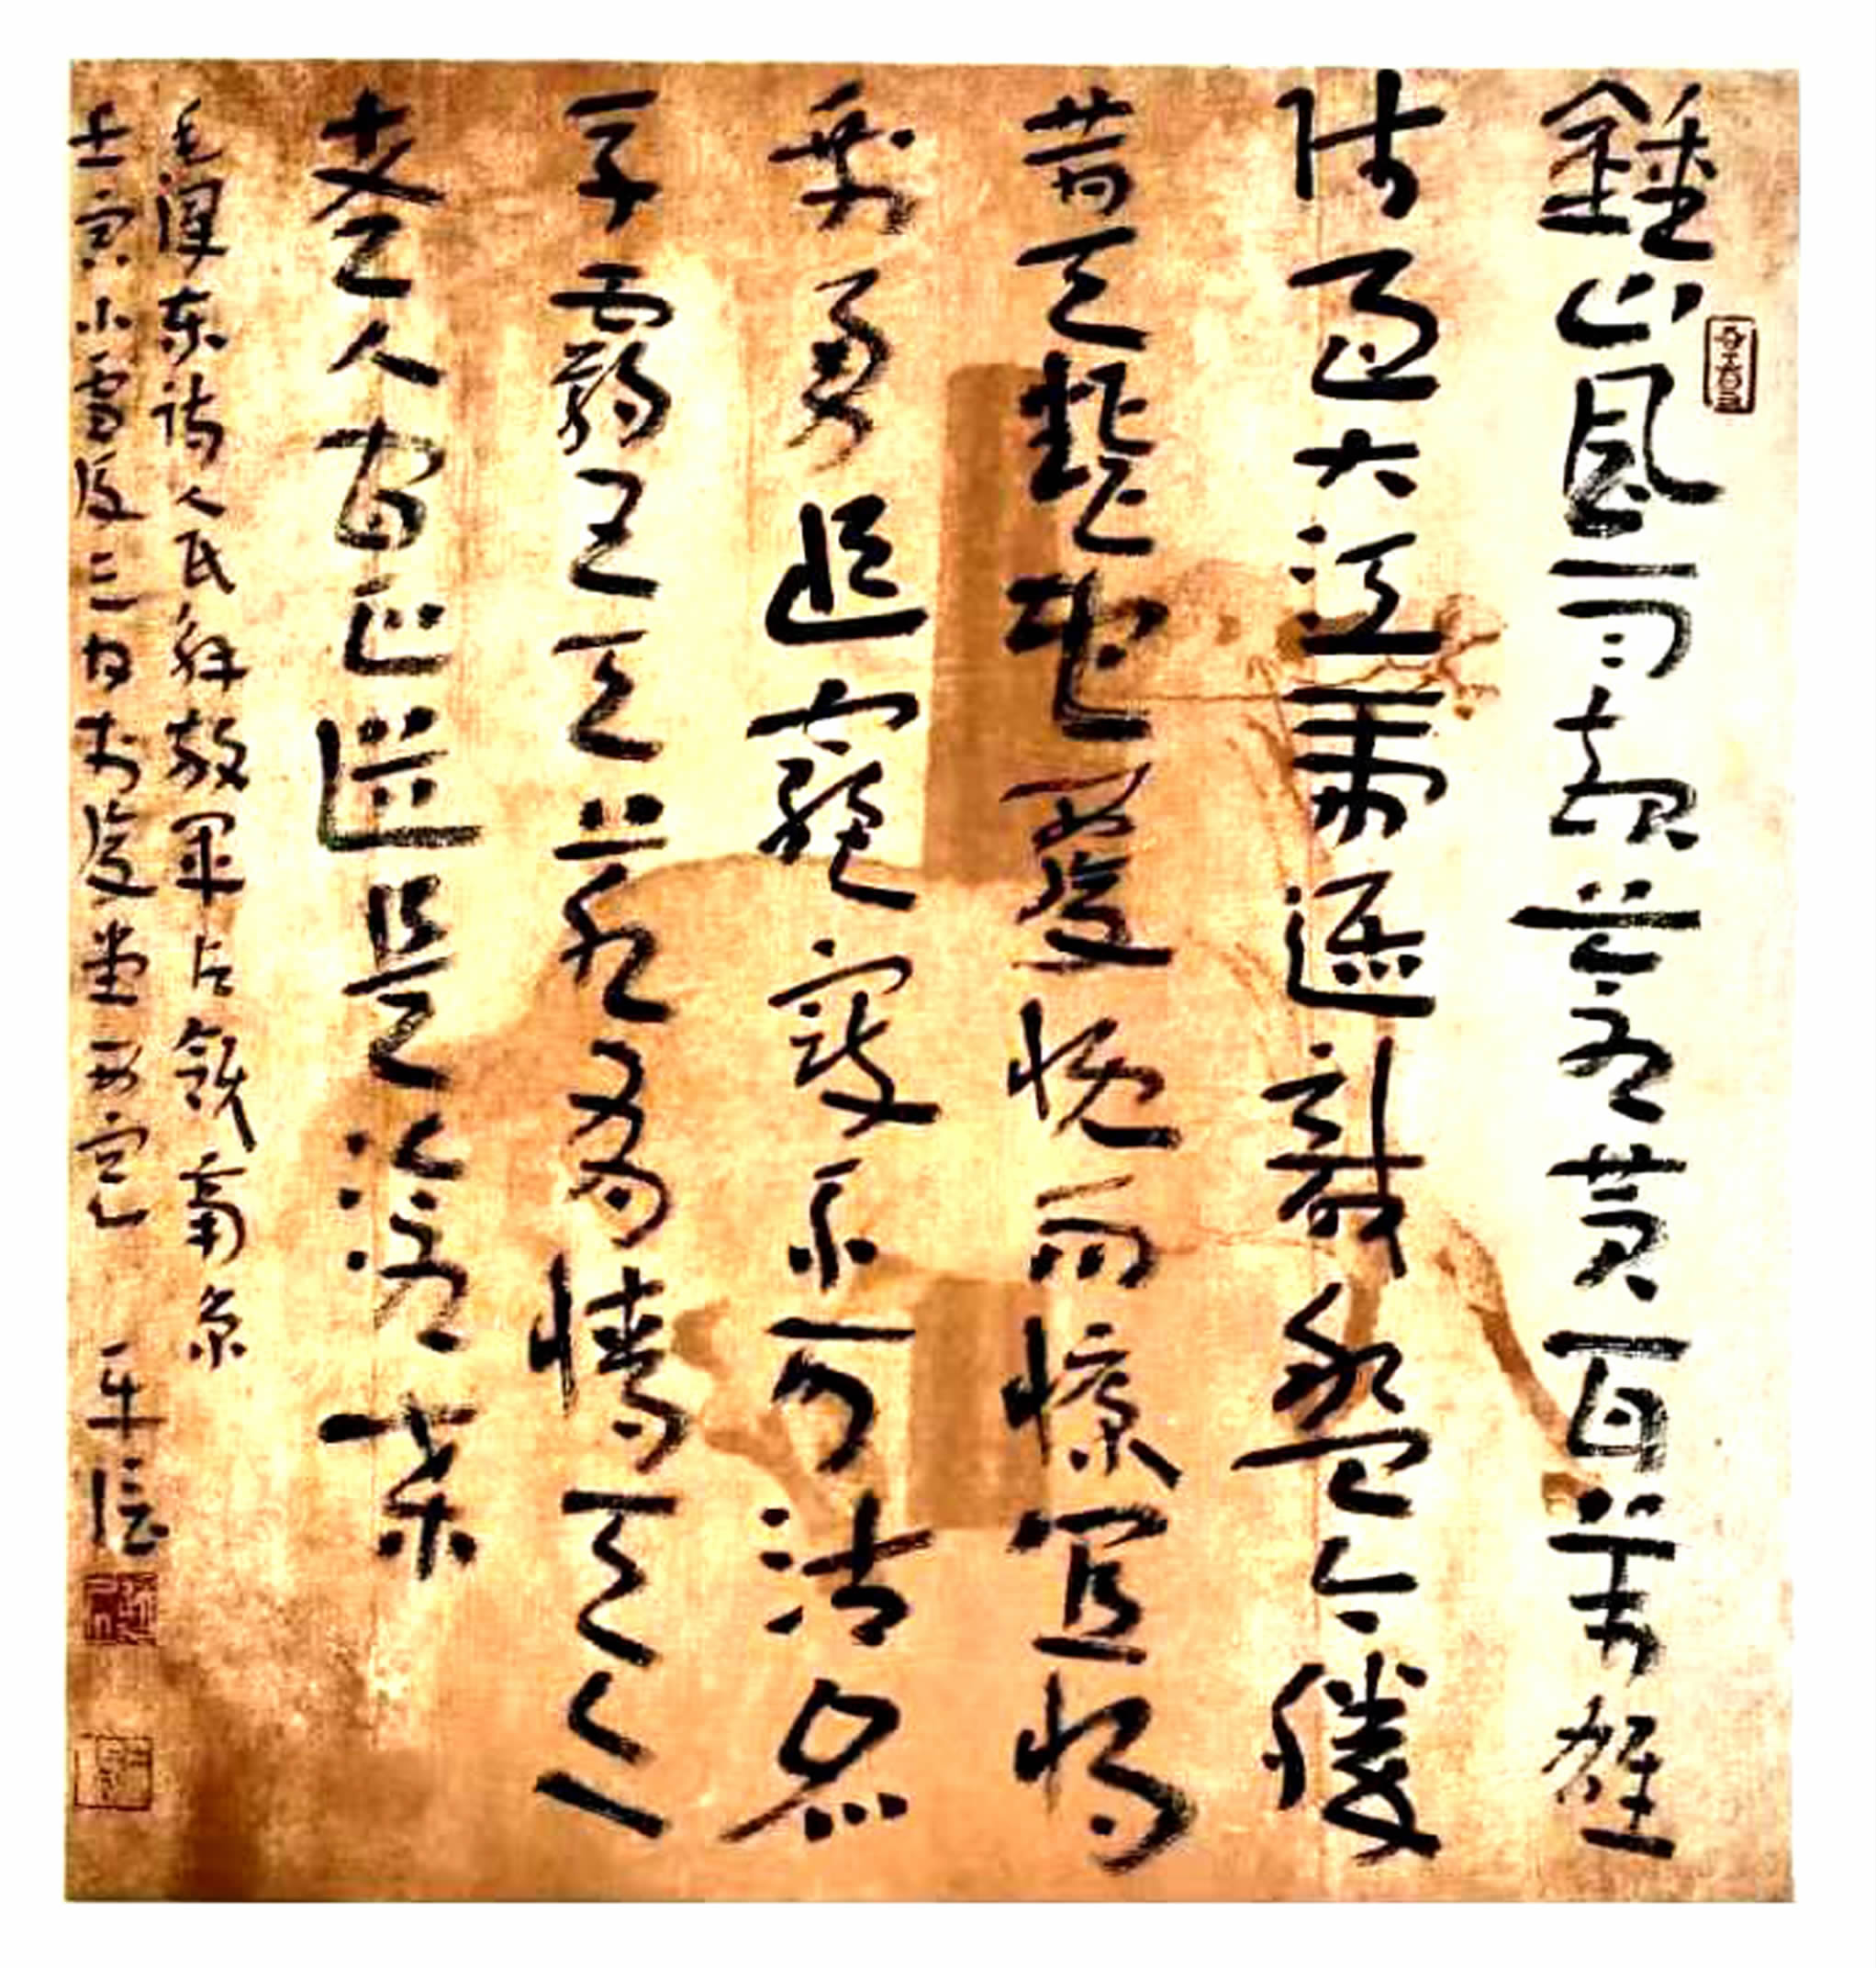 鍾山風雨起蒼黃百萬雄
師過大江虎踞龍盤今勝
昔天翻地覆慨而慷宜將
剩勇追窮寇不可沽名
學霸王天若有情天亦
老人间正道是滄桑
毛澤东诗人民解放軍占領南京
壬寅小雪後三日於堂西窗